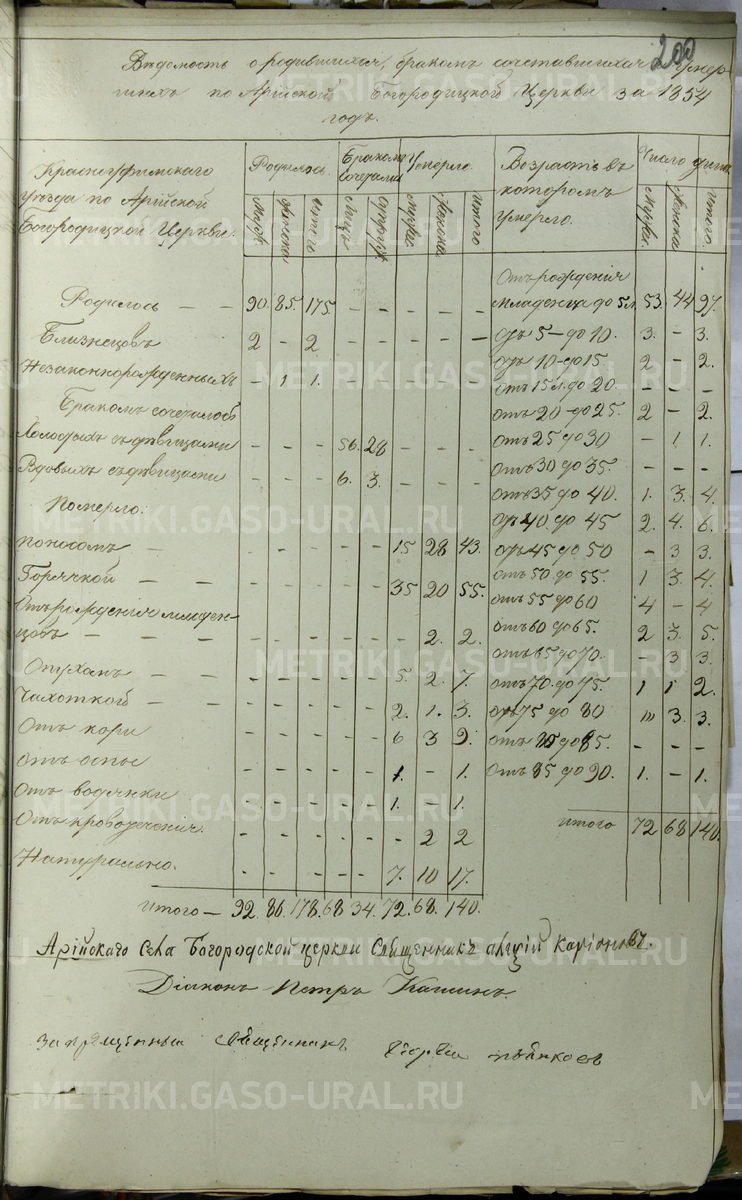 200
Вѣдомость о родившихся, бракомъ сочетавшихся умер-
шихъ по Арійской Богородицкой Церкви за 1854
годъ.
Красноуфимскаго уѣзда по Арійской Богородицкой Церкви. | Родилось. | Бракомъ сочеталось | Померло. | Возрастъ въ которомъ умерло. | Число душъ
Муж. Женска Итого | Лицъ | Мужес. Женска. Итого | Мужес. Женска Итого.
Родилось — — 90. 85. 175. – – – – –
Отъ рожденія
младенца до 5 л. 53. 44 97.
Близнецовъ 2 – 2. – – – – –
отъ 5 – до 10. 3. – 3.
Незаконнорожденныхъ – 1. 1. – – – – –
отъ 10 – до 15 2 – 2.
отъ 15 л. до 20. – – –
Бракомъ сочеталось
отъ 20 – до 25. 2 – 2.
Холостыхъ съ дѣвицами – – – 56. 28 – – –
отъ 25 до 30 – 1. 1.
Вдовыхъ съ дѣвицами – – – 6. 3. – – –
отъ 30 до 35. – – –
отъ 35 до 40. 1. 3. 4.
Померло:
отъ 40. до 45 2. 4. 6.
поносомъ – – – – – – 15 28 43.
отъ 45 до 50 – 3 3.
Горячкой – – – – – – – 35 20 55.
отъ 50 до 55. 1 3. 4.
отъ 55 до 60 4 – 4
Отъ рожденія младен-
цовъ – – – – – – – – – 2. 2.
отъ 60 до 65. 2 3. 5.
отъ 65 до 70. – 3 3.
Опухаль – – – – – 5. 2. 7.
отъ 70. до 75. 1 1 2.
Чахоткой – – – – – – – 2. 1. 3.
отъ 75 до 80 3. 3.
Отъ кори – – – – – 6 3 9.
отъ 80 до 85. – – –
отъ оспы – – – – – 1. – 1.
отъ 85 до 90. 1. – 1.
отъ водянки – – – – – 1. – 1.
Отъ кровотеченія. – – – – – – 2 2
итого 72 68 140.
Натурально. – – – – – 7. 10 17.
Итого — 92. 86. 178. 68 34. 72. 68. 140.
Арійскаго Села Богородской церкви Священникъ Каріоновъ.
Діаконъ Петръ Кашинъ.
Запрещенный Священникъ Георгій
METRIKI.GASO-URAL.RU